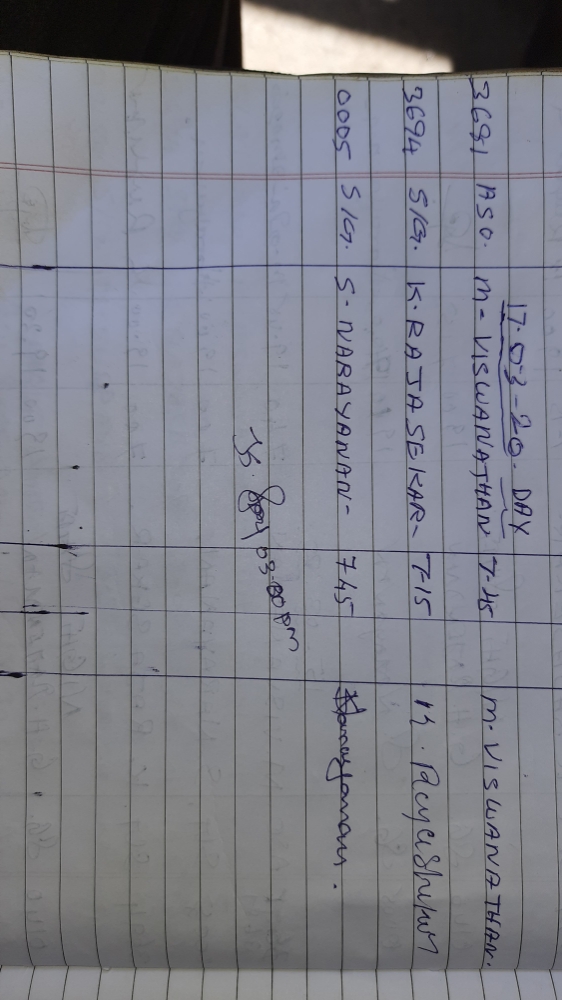 17-03-20. DAY
3691 ASO. M. VISWANATHAN 7-45 M. VISWANATHAN.
3694 S/G. K. RAJASEKAR- 7-15 K. Rajashekar
0005 S/G. S. NARAYANAN- 745
03.00 pm